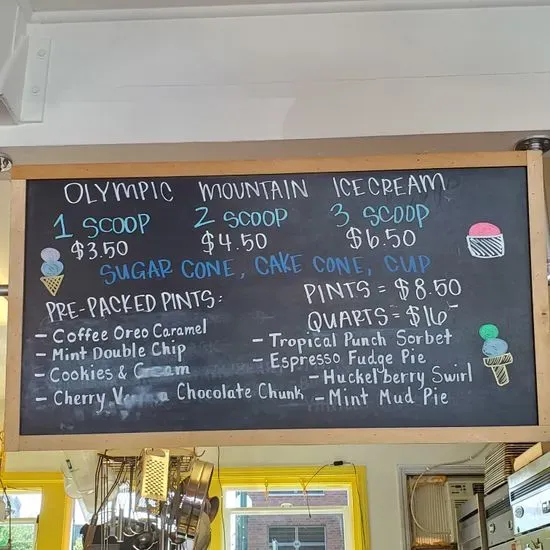 OLYMPIC MOUNTAIN ICECREAM
1 SCOOP 2 SCOOP 3 SCOOP
$3.50 $4.50 $6.50
SUGAR CONE, CAKE CONE, CUP
PRE-PACKED PINTS:
- Coffee Oreo Caramel
- Mint Double Chip
- Cookies &
- Cherry Chocolate Chunk
PINTS = $8.50
QUARTS = $16-
- Tropical Punch Sorbet
- Espresso Fudge Pie
- Huckelberry Swirl
- Mint Mud Pie